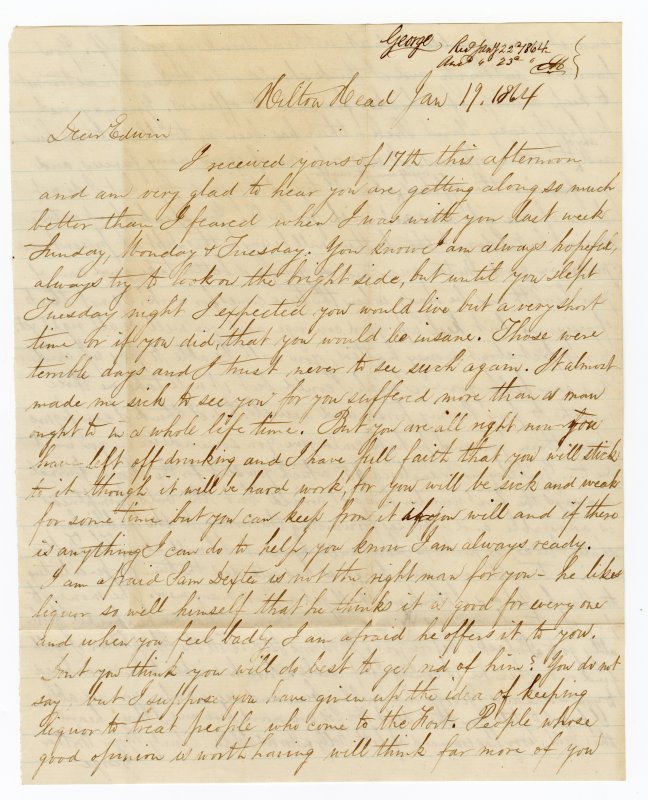 George Recd Jany 22d 1864
Ansd " 23d "
Hilton Head Jan 19. 1864
Dear Edwin
I received yours of 17th this afternoon
and am very glad to hear you are getting along so much
better than I feared when I was with you last week
Sunday, Monday & Tuesday. You know I am always hopeful,
always try to look on the bright side, but until you slept
Tuesday night I expected you would live but a very short
time or if you did, that you would be insane. Those were
terrible days and I trust never to see such again. It almost
made me sick to see you for you suffered more than a man
ought to in a whole life time. But you are all right now - you
have left off drinking and I have full faith that you will stick
to it though it will be hard work, for you will be sick and weak
for some time but you can keep from it if you will and if there
is anything I can do to help, you know I am always ready.
I am afraid Sam Dexter is not the right man for you - he likes
liquor so well himself that he thinks it is good for every one
and when you feel badly I am afraid he offers it to you.
Dont you think you will do best to get rid of him? You do not
say but I suppose you have given up the idea of keeping
liquor to treat people who come to the Fort. People whose
good opinion is worth having will think far more of you